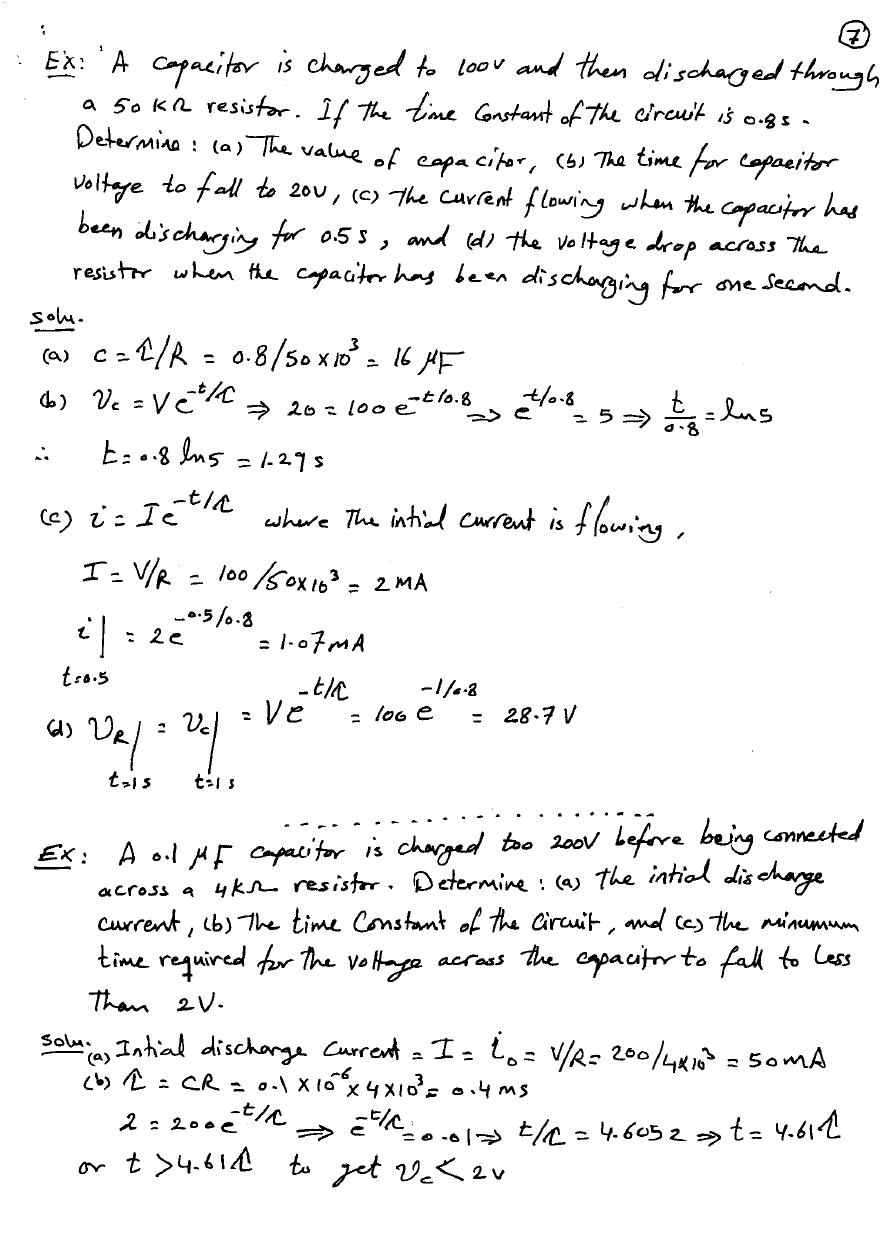 7
Ex: A capacitor is charged to 100V and then discharged through
a 50 KΩ resistor. If the time Constant of the circuit is 0.8s.
Determine: (a) The value of capacitor, (b) The time for capacitor
Voltage to fall to 20V, (c) The current flowing when the capacitor has
been discharging for 0.5 S, and (d) the voltage drop across the
resistor when the capacitor has been discharging for one second.
Solu.
(a) c = τ/R = 0.8/50×10³ = 16 μF
(b) Vc = V e^{-t/τ} ⇒ 20 = 100 e^{-t/0.8} ⇒ e^{t/0.8} = 5 ⇒ t/0.8 = ln5
∴ t = 0.8 ln5 = 1.29 s
(c) i = I e^{-t/τ} where The intial current is flowing,
I = V/R = 100/50×10³ = 2 mA
i| = 2e^{-0.5/0.8} = 1.07 mA
t=0.5
(d) VR| = Vc| = V e^{-t/τ} = 100 e^{-1/0.8} = 28.7 V
t=1s t=1s
Ex: A 0.1 μF capacitor is charged too 200V before being connected
across a 4kΩ resistor. Determine: (a) The intial discharge
current, (b) The time Constant of the Circuit, and (c) the minumum
time required for the voltage across the capacitor to fall to less
Than 2V.
Solu. (a) Intial discharge Current = I = i₀ = V/R = 200/4×10³ = 50 mA
(b) τ = CR = 0.1×10⁻⁶×4×10³ = 0.4 ms
2 = 200e^{-t/τ} ⇒ e^{-t/τ} = 0.01 ⇒ t/τ = 4.6052 ⇒ t = 4.61τ
or t > 4.61τ to get Vc < 2v